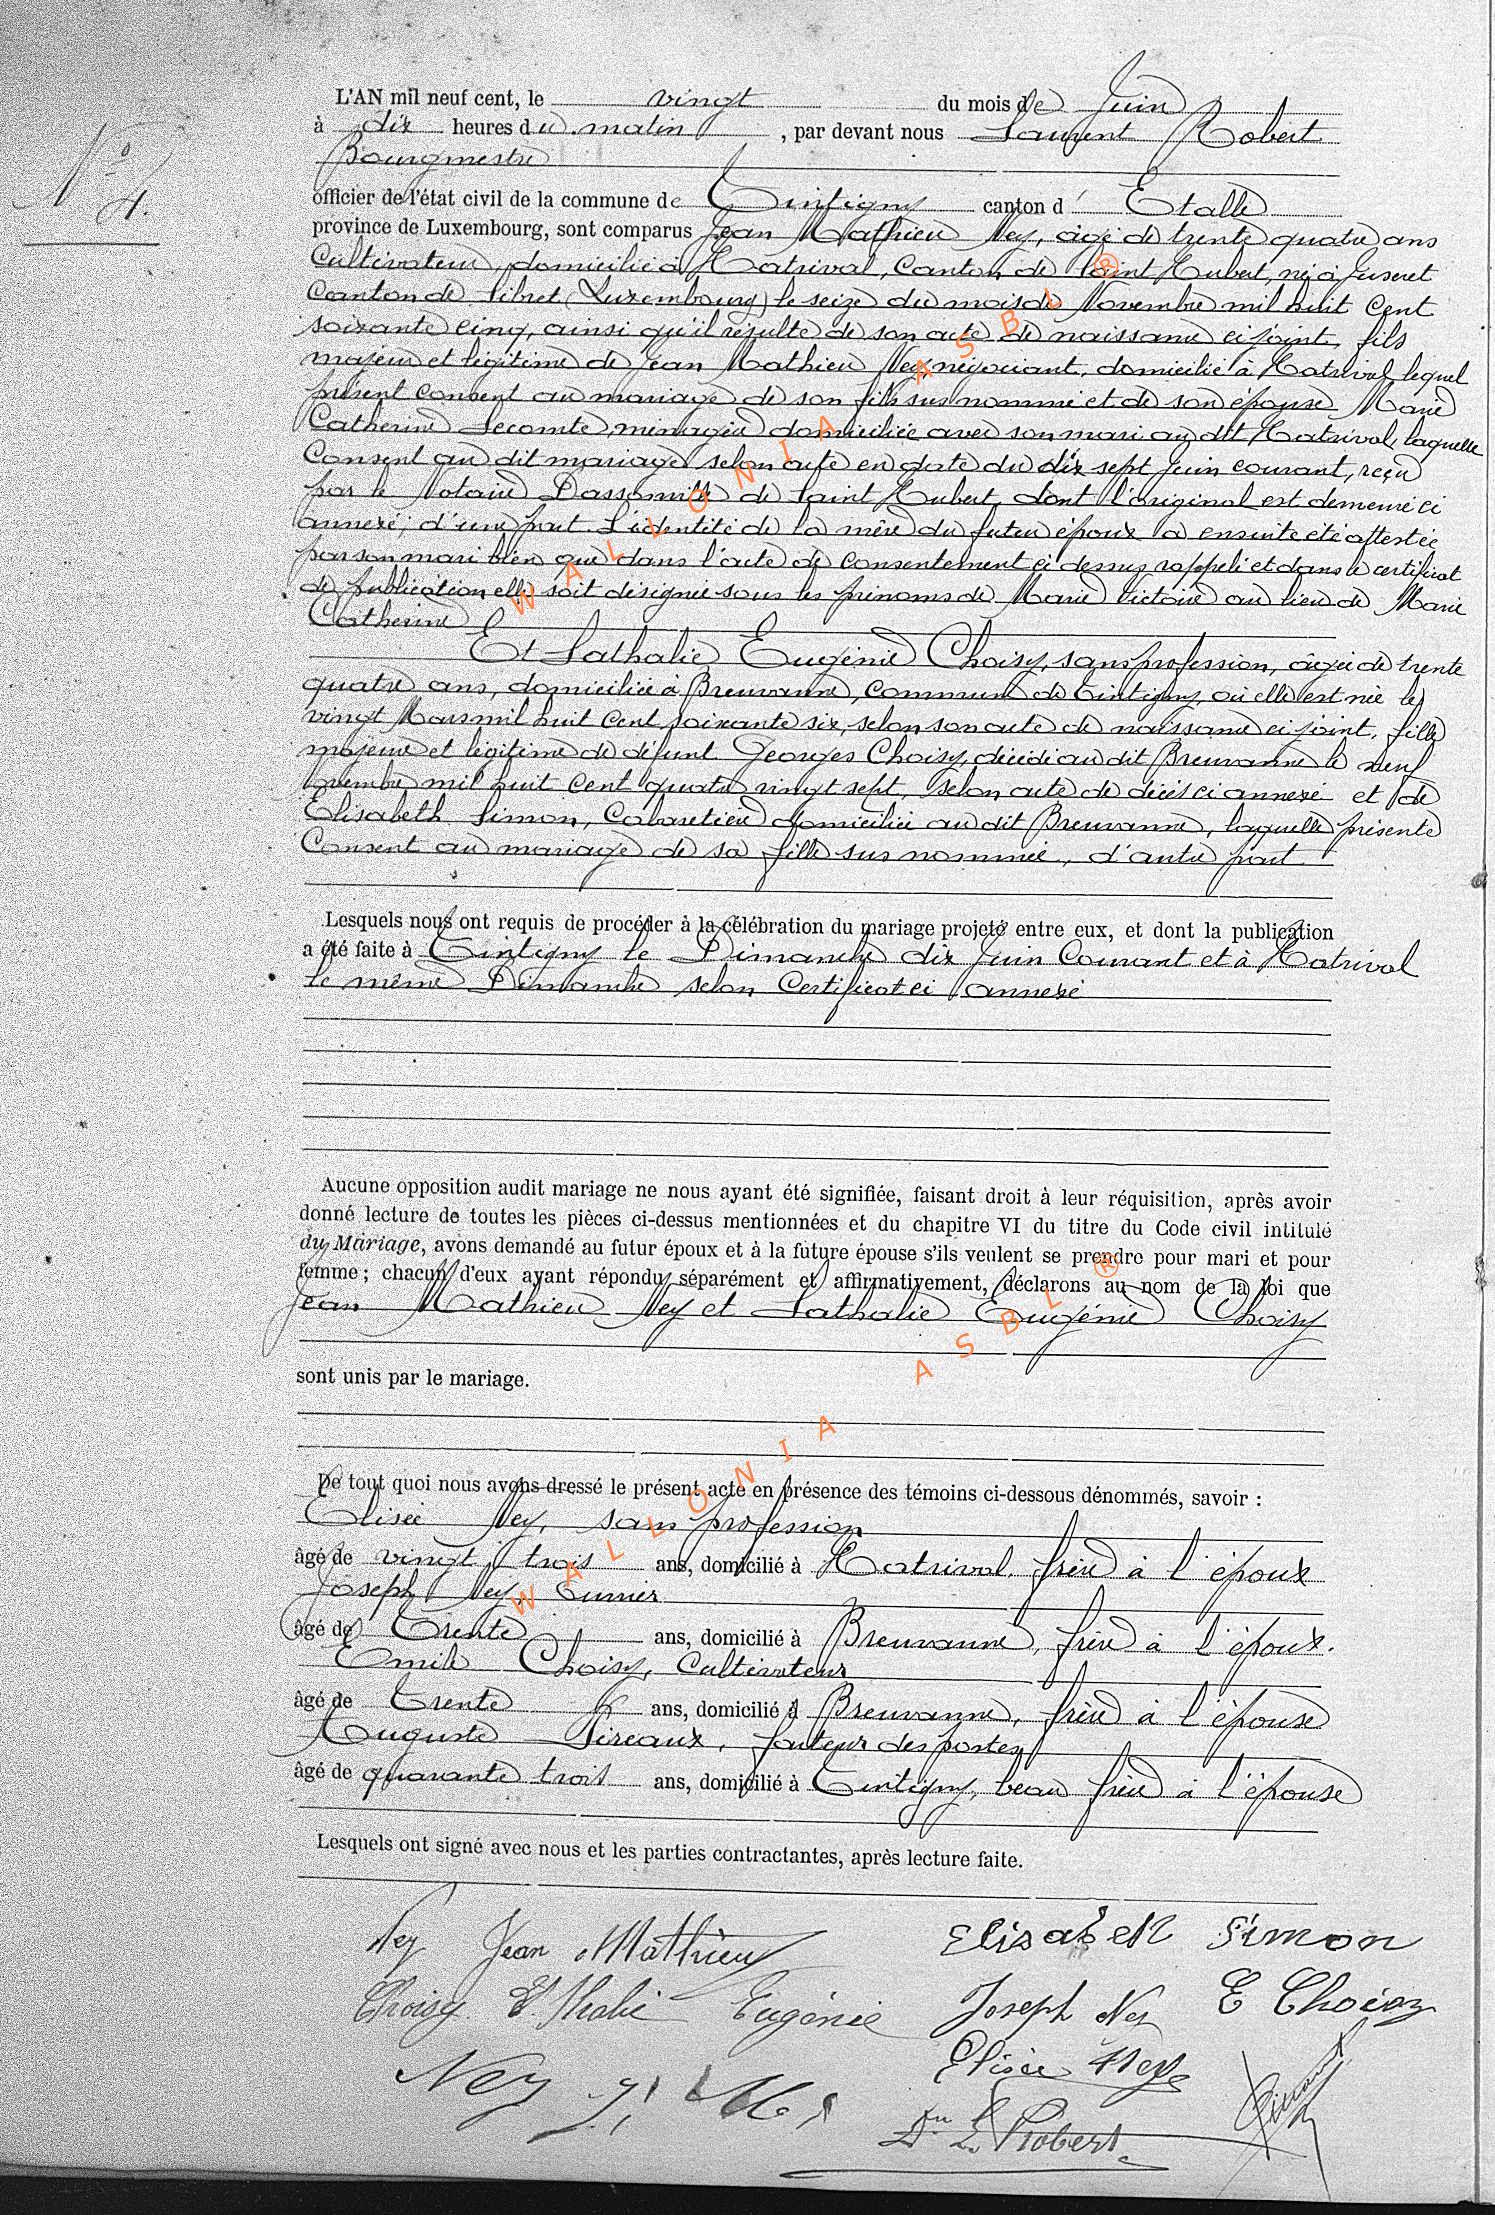 L'AN mil neuf cent, le vingt du mois de Juin
à dix heures du matin, par devant nous Laurent Robert
Bourgmestre
N° 4.
officier de l'état civil de la commune de Tintigny canton d' Etalle
province de Luxembourg, sont comparus Jean Mathieu Ney, âgé de trente quatre ans
Cultivateur, domicilié à Hatrival, Canton de Saint Hubert, né à Juseret
Canton de Sibret (Luxembourg) le seize du mois de Novembre mil huit Cent
soixante cinq, ainsi qu'il résulte de son acte de naissance ci joint, fils
majeur et légitime de Jean Mathieu Ney, négociant, domicilié à Hatrival lequel
présent consent au mariage de son fils sus nommé et de son épouse Marie
Catherine Lecomte, ménagère domiciliée avec son mari au dit Hatrival, laquelle
Consent au dit mariage selon acte en date du dix sept Juin courant, reçu
par le Notaire de Saint Hubert, dont l'original est demeuré ci
annexé; d'une part. L'identité de la mère du futur époux a ensuite été attestée
par son mari bien que dans l'acte de consentement ci dessus rappelé et dans le certificat
de publication elle soit désignée sous les prénoms de Marie Victoire au lieu de Marie
Catherine
Et Nathalie Eugénie Choisy, sans profession, âgée de trente
quatre ans, domiciliée à Breuvanne, commune de Tintigny, où elle est née le
vingt Mars mil huit Cent soixante six, selon son acte de naissance ci joint, fille
majeure et légitime de défunt Georges Choisy, décédé au dit Breuvanne le neuf
mil huit cent quatre vingt sept, selon acte de décès ci annexé et de
Elisabeth Simon, Cabaretière domiciliée au dit Breuvanne, laquelle présente
Consent au mariage de sa fille sus nommée, d'autre part
Lesquels nous ont requis de procéder à la célébration du mariage projeté entre eux, et dont la publication
a été faite à Tintigny le Dimanche dix Juin Courant et à Hatrival
le même Dimanche selon Certificat ci annexé
Aucune opposition audit mariage ne nous ayant été signifiée, faisant droit à leur réquisition, après avoir
donné lecture de toutes les pièces ci-dessus mentionnées et du chapitre VI du titre du Code civil intitulé
du Mariage, avons demandé au futur époux et à la future épouse s'ils veulent se prendre pour mari et pour
femme; chacun d'eux ayant répondu séparément et affirmativement, déclarons au nom de la loi que
Jean Mathieu Ney et Nathalie Eugénie Choisy
sont unis par le mariage.
De tout quoi nous avons dressé le présent acte en présence des témoins ci-dessous dénommés, savoir :
Elisée Ney, sans profession
âgé de vingt trois ans, domicilié à Hatrival, frère à l'époux
Joseph Ney,
âgé de Trente ans, domicilié à Breuvanne, frère à l'époux.
Emile Choisy, Cultivateur
âgé de Trente ans, domicilié à Breuvanne, frère à l'épouse
Auguste Pireaux, facteur des postes
âgé de quarante trois ans, domicilié à Tintigny, beau frère à l'épouse
Lesquels ont signé avec nous et les parties contractantes, après lecture faite.
Ney Jean Mathieu Elisabeth Simon
Choisy Eugénie Joseph Ney E Choisy
Elisée Ney
Ney
L Robert
WALLONIA ASBL ®
WALLONIA ASBL ®